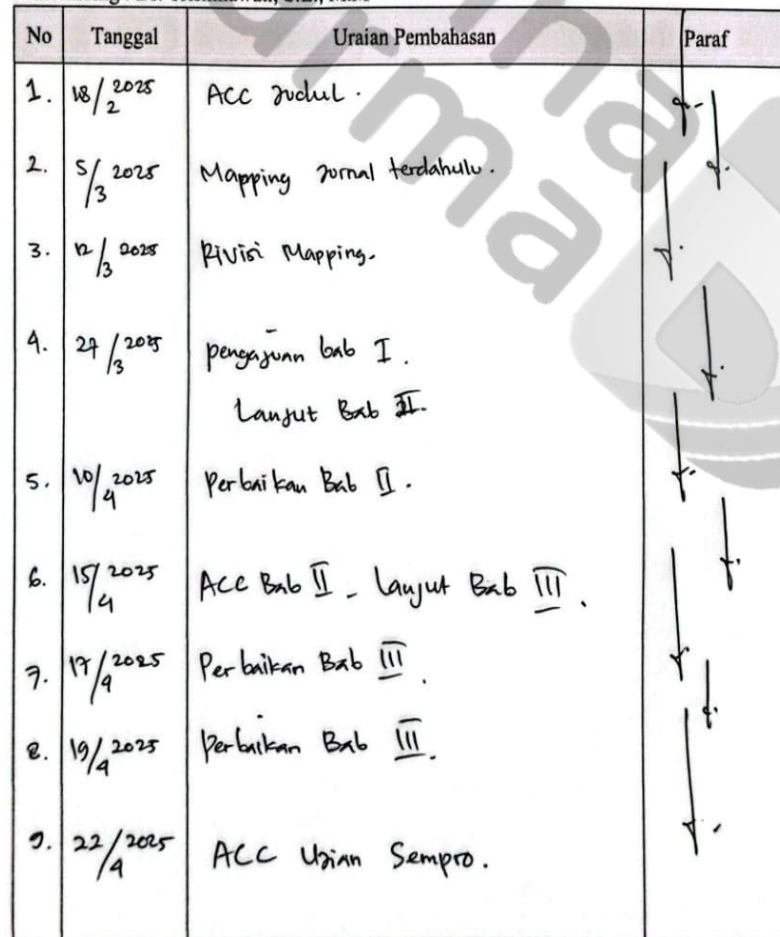 No Tanggal Uraian Pembahasan Paraf
1. 18/2 2025 ACC Judul.
2. 5/3 2025 Mapping Jurnal terdahulu.
3. 12/3 2025 Rivisi Mapping.
4. 27/3 2025 pengajuan bab I.
Lanjut Bab II.
5. 10/4 2025 Perbaikan Bab II.
6. 15/4 2025 ACC Bab II - Lanjut Bab III.
7. 17/4 2025 Perbaikan Bab III.
8. 19/4 2025 Perbaikan Bab III.
9. 22/4 2025 ACC Ujian Sempro.